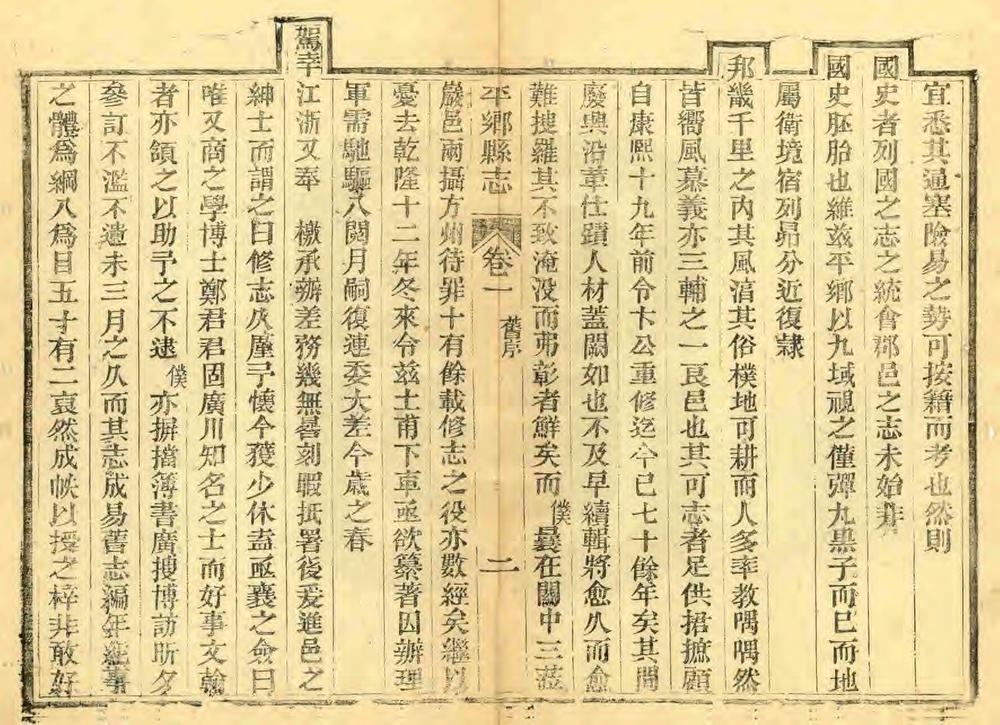 宜悉其通塞險易之勢可按籍而考也然則
國史者列國之志之統會郡邑之志未始非
國史胚胎也維兹平鄉以九域視之僅彈丸黑子而已而地
屬衛境宿列昴分近復隸
邦畿千里之內其風淯其俗樸地可耕而人多率教喁喁然
皆嚮風慕義亦三輔之一良邑也其可志者足供捃摭顧
自康熙十九年前令卞公重修迄今已七十餘年矣其間
廢興沿革仕蹟人材蓋闕如也不及早續輯將愈久而愈
難搜羅其不致淹没而弗彰者鮮矣而僕曩在關中三蒞
平鄉縣志 卷一 舊序 二
巖邑兩攝方州待罪十有餘載修志之役亦數經矣繼以
憂去乾隆十二年冬來令兹土甫下車亟欲纂著因辦理
軍需馳驅八閱月嗣復連委大差今歲之春
駕幸
江浙又奉 檄承辦差務幾無晷刻暇抵署後爰進邑之
紳士而謂之曰修志久廑予懷今獲少休盍亟襄之僉曰
唯又商之學博士鄭君君固廣川知名之士而好事文翰
者亦頷之以助予之不逮僕亦摒擋簿書廣搜博訪昕夕
參訂不濫不遺未三月之久而其志成易舊志編年紀事
之體爲綱八爲目五十有二裒然成帙以授之梓非敢好